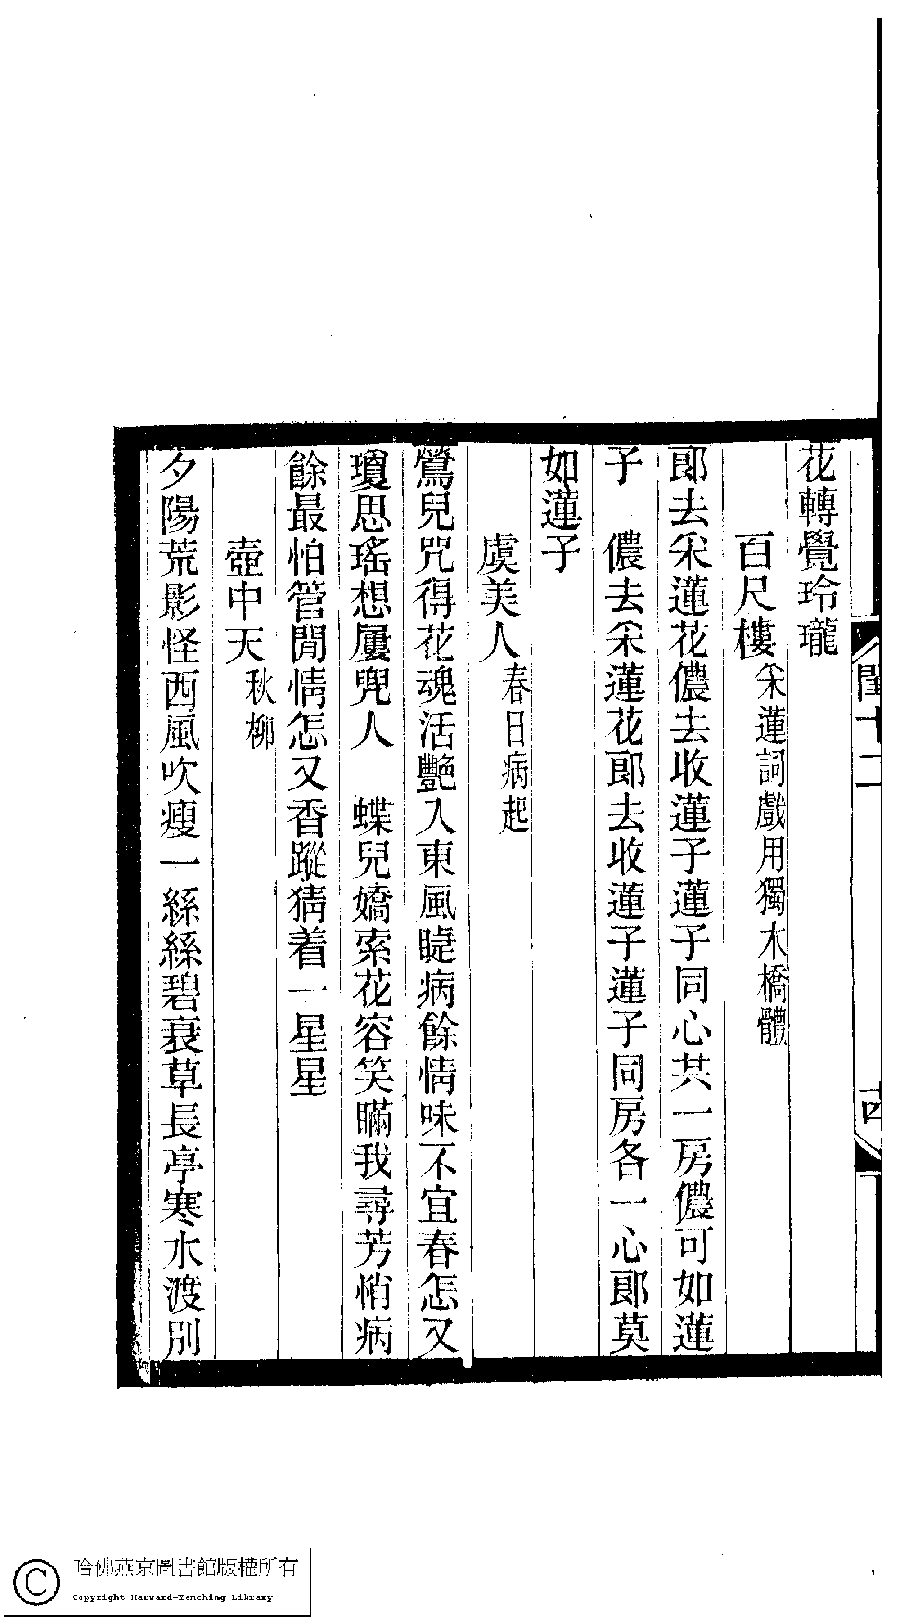 花轉覺玲瓏
百尺樓 采蓮詞戲用獨木橋體
郎去采蓮花儂去收蓮子蓮子同心共一房儂可如蓮
子　儂去采蓮花郎去收蓮子蓮子同房各一心郎莫
如蓮子
虞美人 春日病起
鶯兒咒得花魂活艷入東風睫病餘情味不宜春怎又
瓊思瑤想屢兜人　蝶兒嬌索花容笑瞞我尋芳悄病
餘最怕管閒情怎又香蹤猜着一星星
壺中天 秋柳
夕陽荒影怪西風吹瘦一絲絲碧衰草長亭寒水渡別
哈佛燕京圖書館版權所有
Copyright Harvard-Yenching Library